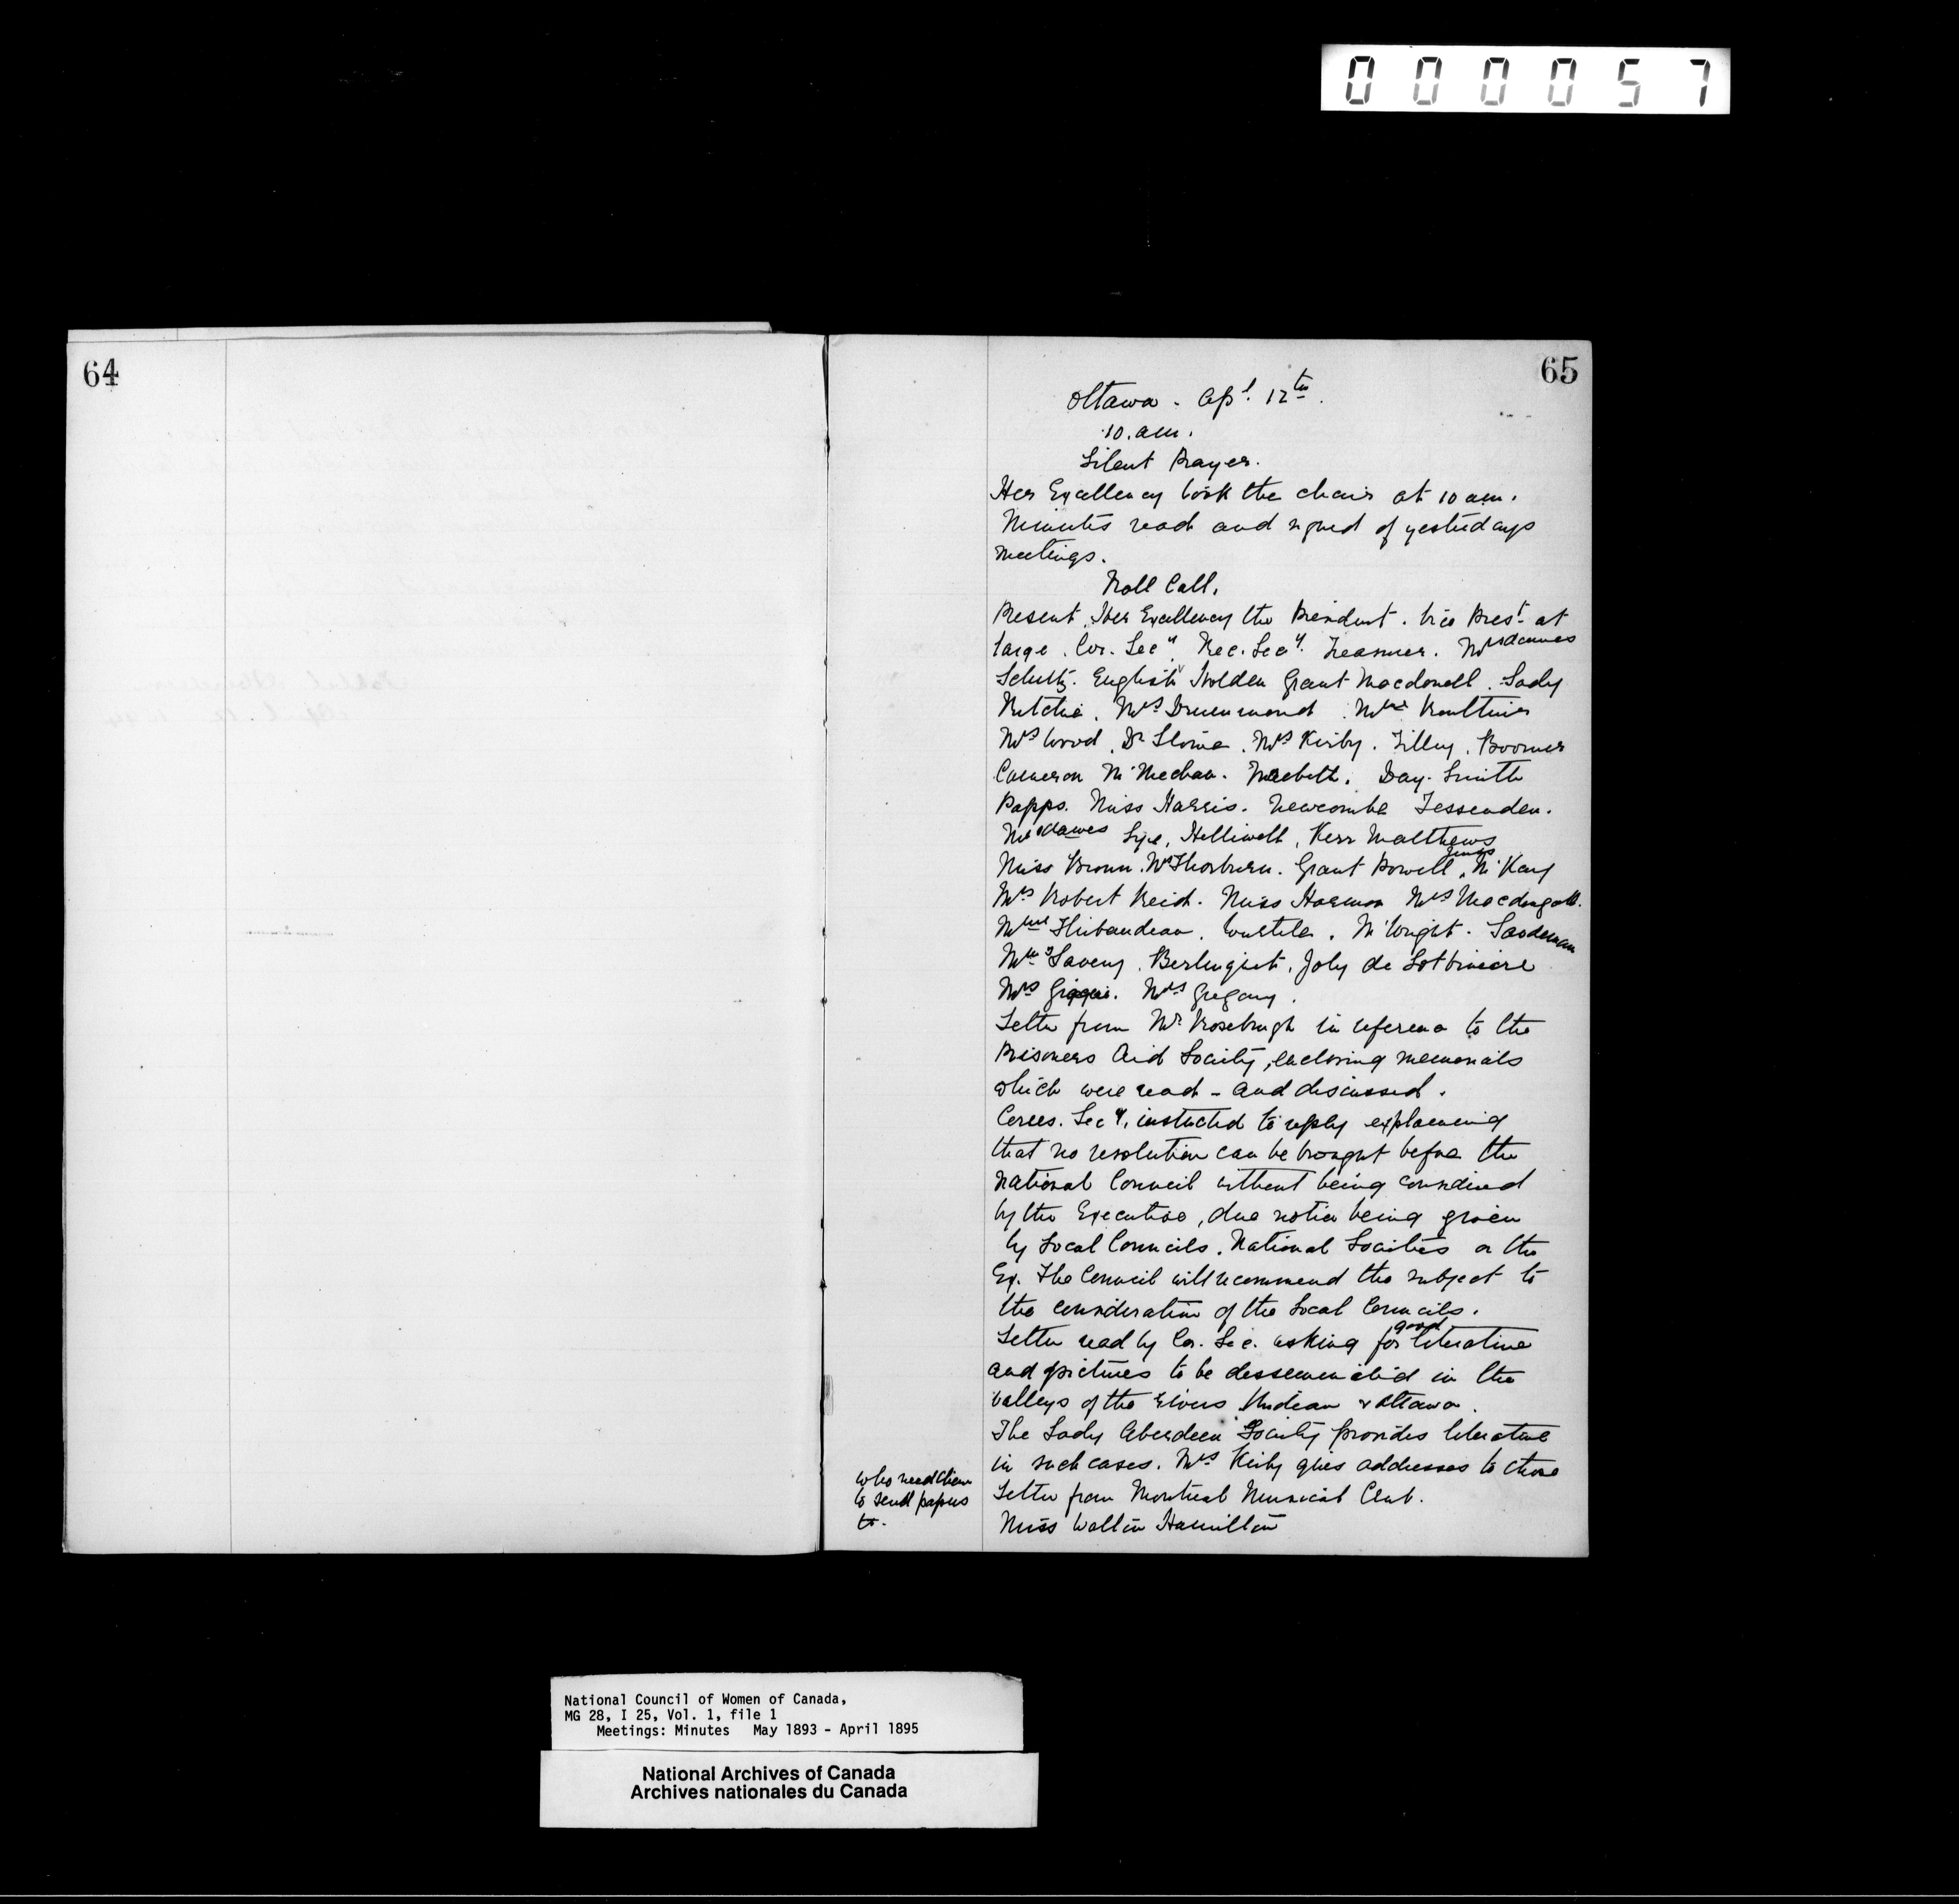 000057
64
65
Ottawa - Apl. 12th.
10. am.
Silent Prayer.
Her Excellency took the chair at 10 am.
Minutes read and signed of yesterdays
meetings.
Roll Call.
Present, Her Excellency the President. Vice Prest. at
large. Cor. Secy. Rec. Secy. Treasurer. Mesdames
Schultz. English Holden Grant Macdonell. Lady
Ritchie. Mrs Drummond. Mme Routhier
Mrs Wood. Dr Stowe. Mrs Kirby. Tilley. Boomer
Cameron McMechan. Macbeth. Day-Smith
Papps. Miss Harris. Newcombe Fessenden.
Mesdames Helliwell, Kerr Matthews
Miss Brown. Mrs Thorburn. Grant Powell, McKay
Mrs Robert Reid. Miss Harmon Mrs Macdougall.
Mme Thibaudeau. Wurtele. McWright. Sandeman
Berlinguet. Joly de Lotbiniere
Mrs Mrs Gregory.
Letter from Dr. Rosebrugh in reference to the
Prisoners Aid Society, enclosing memorials
which were read - and discussed.
Corres. Secy. instructed to reply explaining
that no resolution can be brought before the
National Council without being considered
by the Executive, due notice being given
by Local Councils. National Societies or the
Ex. The Council will recommend the subject to
the consideration of the Local Councils.
Letter read by Cor. Sec. asking for good literature
and pictures to be dessemenated in the
valleys of the rivers & Ottawa.
The Lady Aberdeen Society provides literature
in such cases. Mrs Kirby gives addresses to those
who need them
to send papers
to.
Letter from Montreal Musical Club.
Miss Hamilton
National Council of Women of Canada,
MG 28, I 25, Vol. 1, file 1
Meetings: Minutes May 1893 - April 1895
National Archives of Canada
Archives nationales du Canada